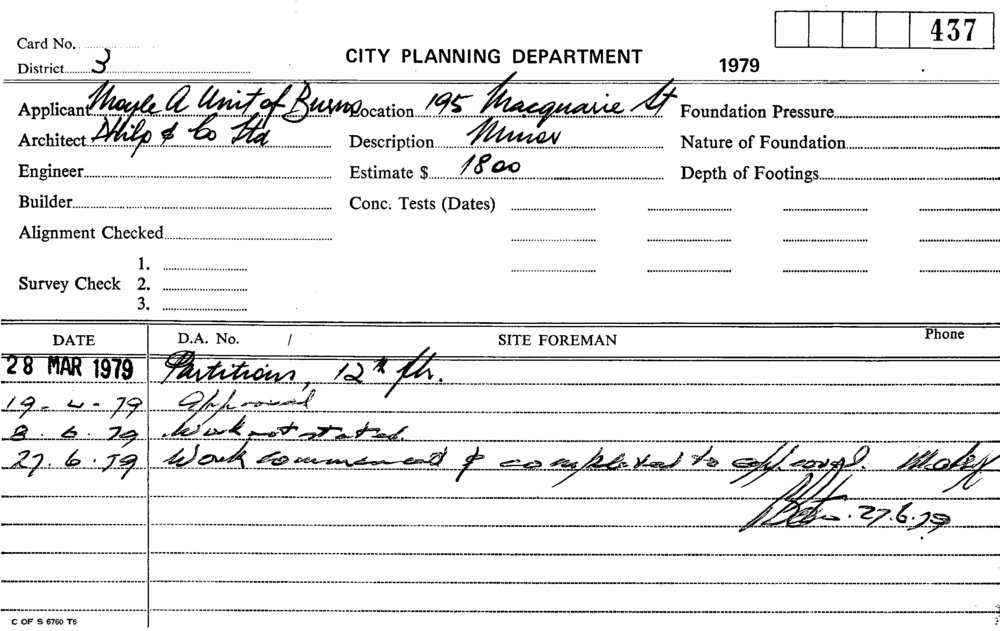 437
Card No.
District 3
CITY PLANNING DEPARTMENT
1979
Applicant Moyle A Unit of Burns Location 195 Macquarie St Foundation Pressure
Architect Philp & Co Ltd Description Minor Nature of Foundation
Engineer Estimate $ 1800 Depth of Footings
Builder Conc. Tests (Dates)
Alignment Checked
1.
Survey Check 2.
3.
DATE D.A. No. / SITE FOREMAN Phone
28 MAR 1979 Partitions, 12th flr.
19-4-79 Approved
8.6.79 Work not stated.
27.6.79 Work commenced & completed to approval.
27.6.79
C OF S 6760 T6